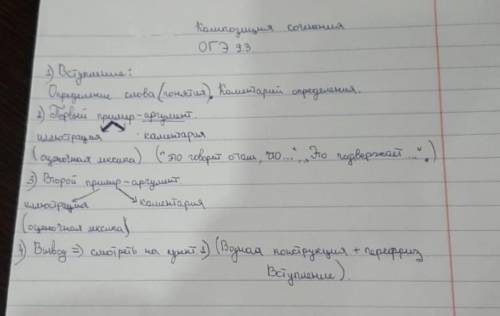 Композиция сочинения
ОГЭ 9.3
1) Вступление:
Определение слова (понятия). Коментарий определения.
2) Первый пример-аргумент.
иллюстрация коментария
(оценочная лексика) ("это говорит о том, что...", "Это подверждает...".)
3) Второй пример-аргумент
иллюстрация коментария
(оценочная лексика)
4) Вывод => смотреть на пункт 1) (Водная конструкция + перефриз
Вступление).